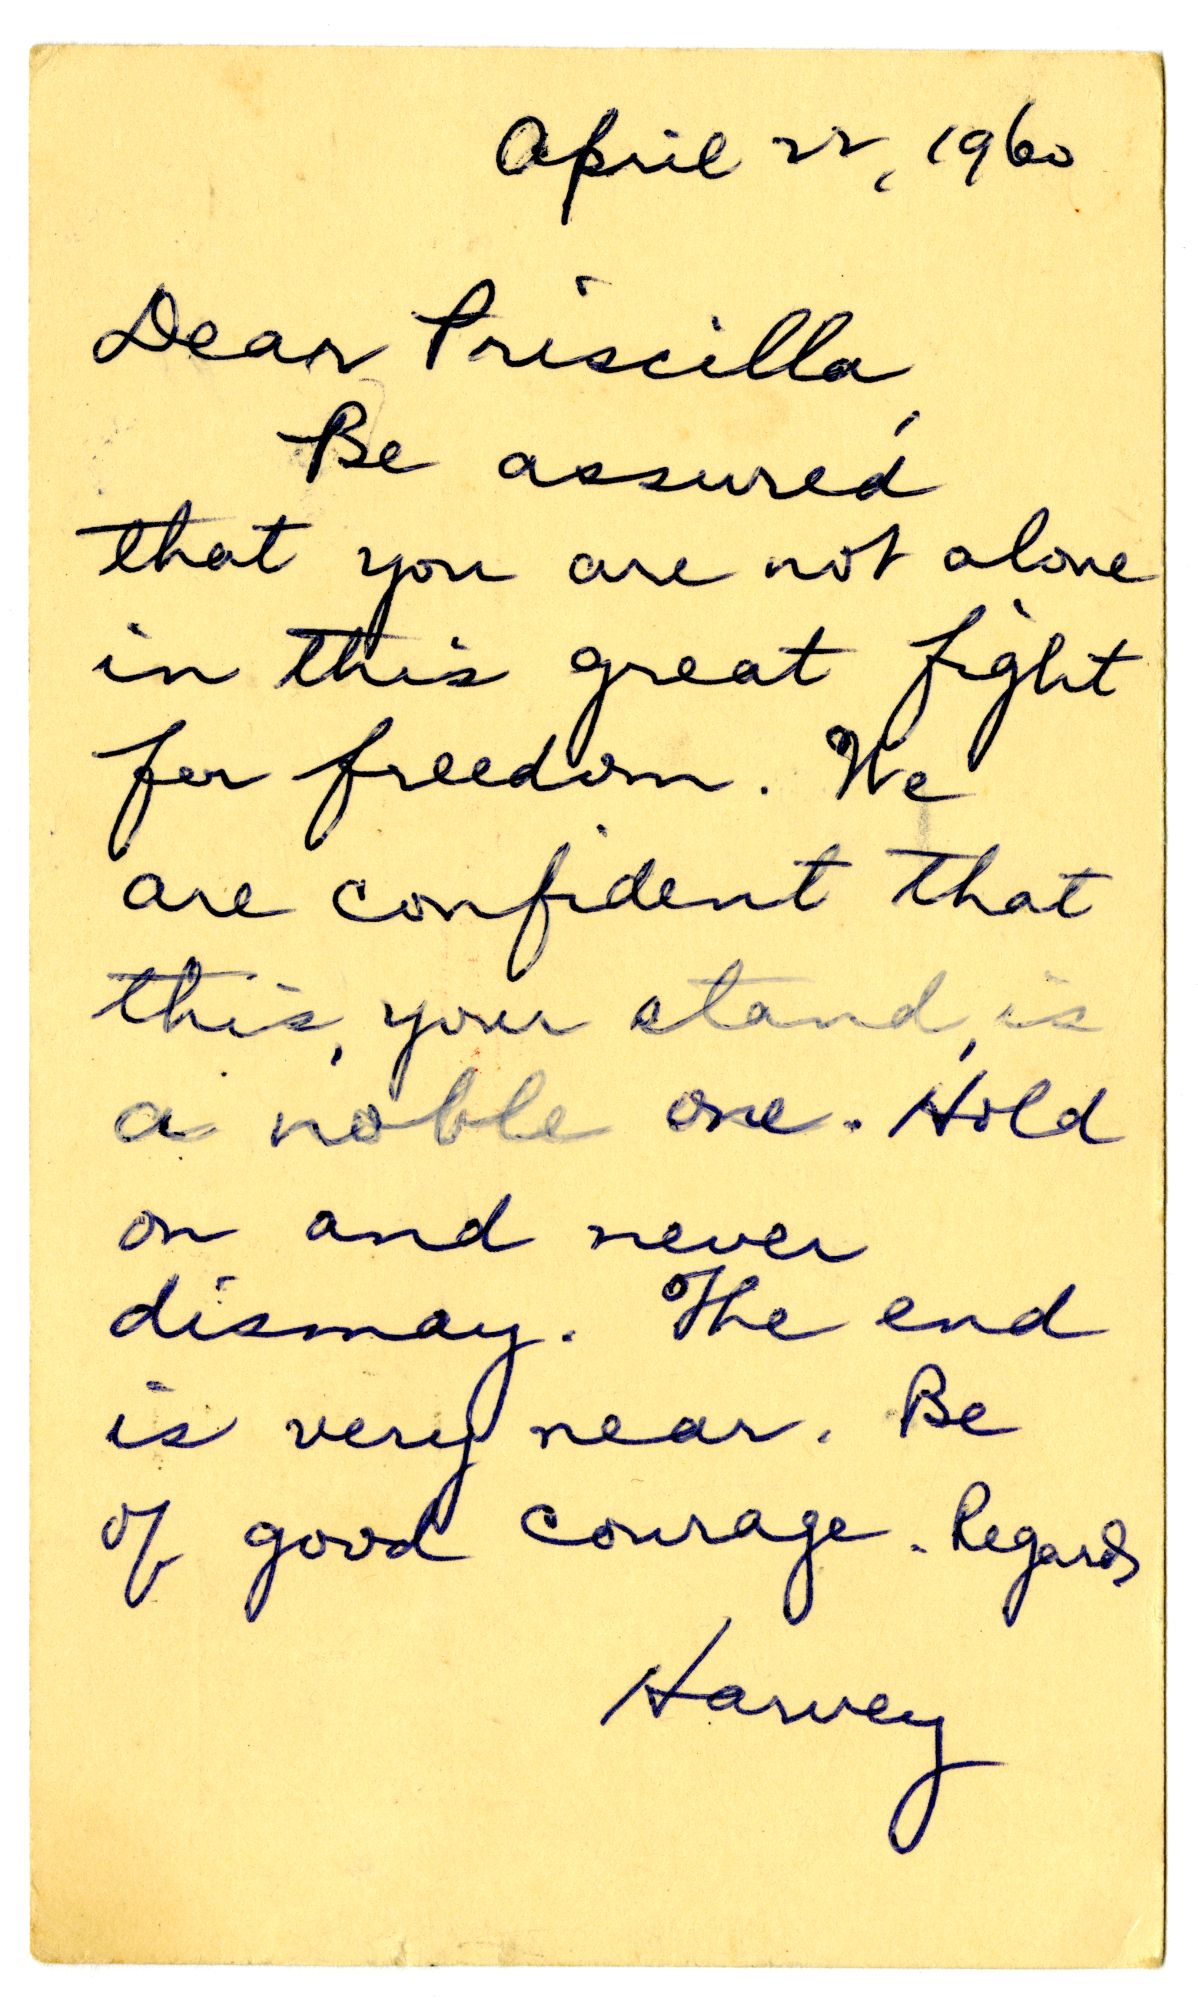 April 22, 1960
Dear Priscilla,
Be assured
that you are not alone
in this great fight
for freedom. We
are confident that
this, your stand, is
a noble one. Hold
on and never
dismay. The end
is very near. Be
of good courage. Regards
Harvey